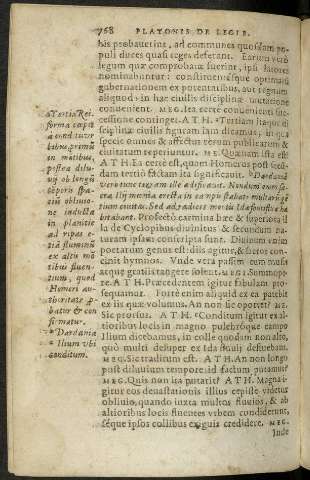 768 PLATONIS DE LEGIB.
his probauetint, ad communes quosdam po-
puli duces quasi reges deferant. Earum verò
legum quæ comprobatæ fuerint, ipsi latores
nominabuntur: constituentésque optimatũ
gubernationem ex potentatibus, aut regnum
aliquod in hac ciuilis disciplinæ mutatione
conuenient. MEG. Ita certè conuenienti suc-
cessione contingit. ATH. *Tertiam itaque di-
sciplinæ ciuilis figuram iam dicamus, in qua
species omnes & affectus rerum publicarum &
ciuitatum reperiuntur. ME. Quænam ista est?
ATH. Ea certè est, quam Homerus post secũ-
dam tertiò factam ita significauit. *Dardaniã
verò tunc
Nondum enim sa-
cra Ilij mœnia erecta in campo stabãt multarũ gẽ-
tium ciuitas. Sed ad radices montis Idæ
habitabant. Profectò carmina hæc & superiora il-
la de Cyclopibus diuinitùs & secundùm na-
turam ipsam conscripta sunt. Diuinum enim
poëtarum genus est: diis agitur, & sacros con-
cinit hymnos. Vnde vera passim cum musis
atque gratiis tangere solent. MEG. Summope-
re. ATH. Præcedentem igitur fabulam pro-
sequamur. Fortè enim aliquid ex ea patebit
ex iis quæ volumus. An non sic oportet? ME.
Sic prorsus. ATH. *Conditum igitur ex al-
tioribus locis in magno pulchróque campo
Ilium dicebamus, in colle quodam non alto,
quò multi desuper ex Ida fluuij descendebant.
MEG. Sic traditum est. ATH. An non longo
post diluuium tempore id factum putamus?
MEG. Quis non ita putarit? ATH. Magna i-
gitur eos deuastationis illius cepisse videtur
obliuio, quando iuxta multos fluuios, & ab
altioribus locis fluentes vrbem condiderunt,
séque ipsos collibus exiguis credidere. MEG.
Inde
*Tertia Rei-
formæ cœptæ
à conditis vr-
bibus, primũ
in montibus,
postea dilu-
uij ob longũ
tẽporis spa-
tiũ obliuio-
ne inducta
in planitie
ad ripas e-
tiã fluminũ
ex altis mõ-
tibus fluen-
tium, quod
Homeri au-
thoritate p-
batur & con
firmatur.
*Dardania
Ilium vbi
conditum.